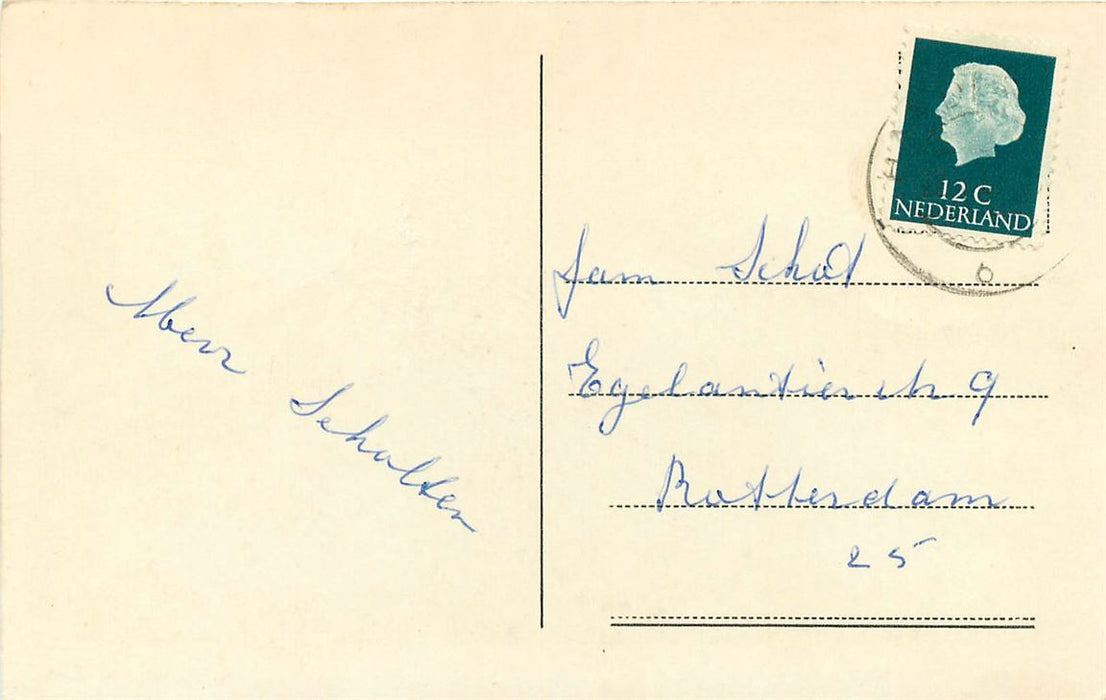 Mevr Scholten
12 C
NEDERLAND
Fam Schot
Egelantierstr 9
Rotterdam
25